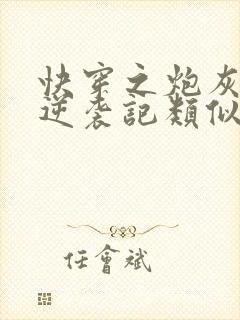 快穿之炮灰
逆袭記類似
任會斌